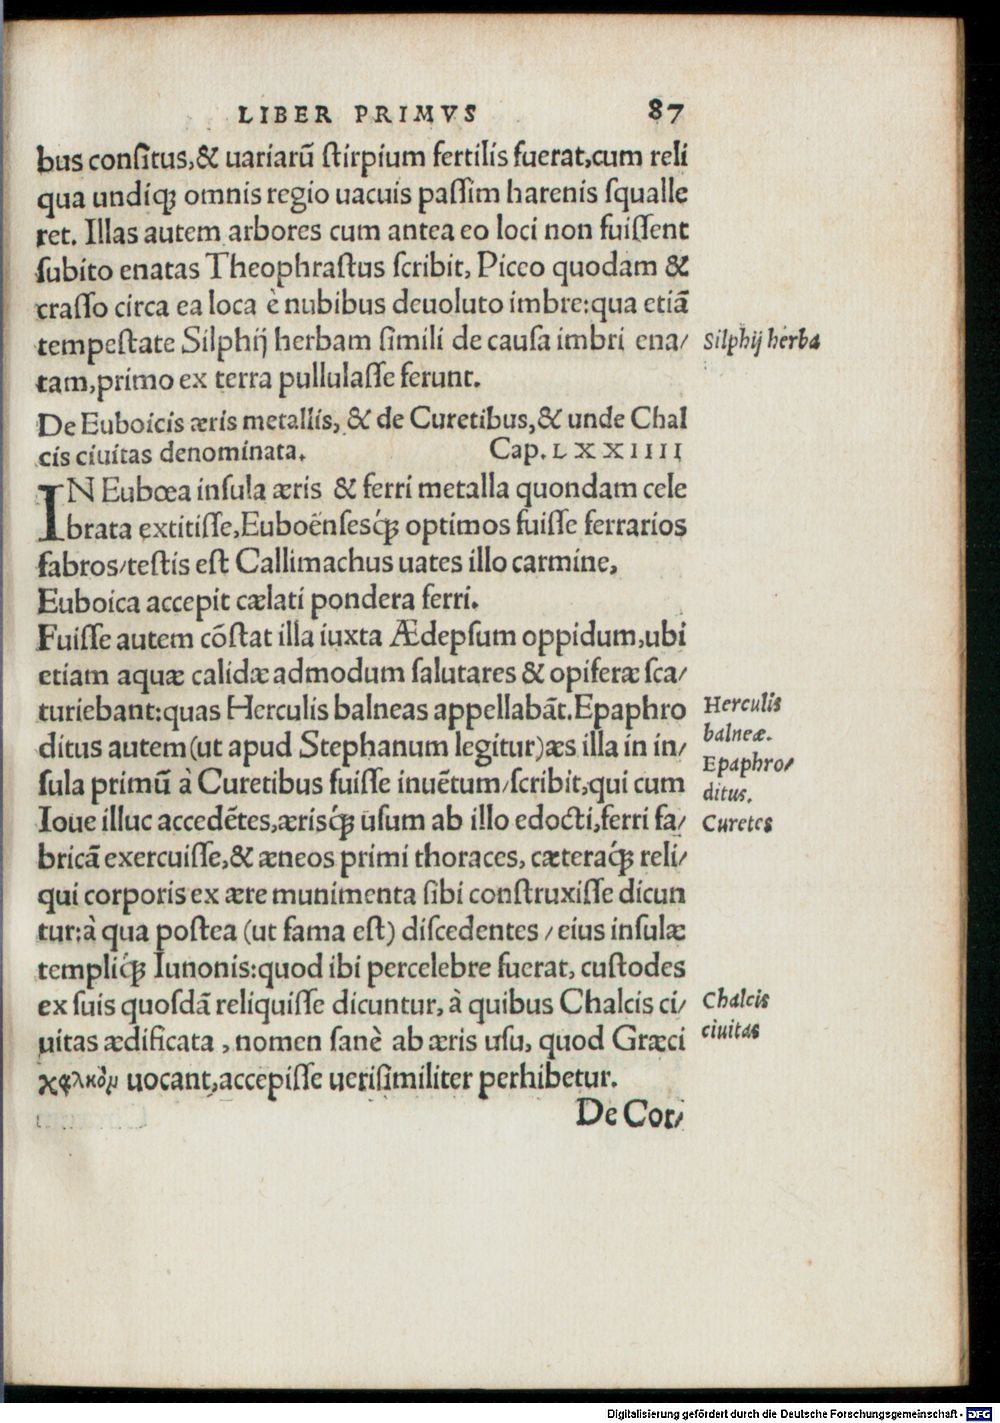 LIBER PRIMVS 87
bus consitus,& uariarũ stirpium fertilis fuerat,cum reli
qua undiqꝫ omnis regio uacuis passim harenis squalle
ret. Illas autem arbores cum antea eo loci non fuissent
subito enatas Theophrastus scribit, Piceo quodam &
crasso circa ea loca è nubibus deuoluto imbre:qua etiã
tempestate Silphij herbam simili de causa imbri ena/
Silphij herba
tam,primo ex terra pullulasse ferunt.
De Euboicis æris metallis, & de Curetibus,& unde Chal
cis ciuitas denominata. Cap. LXXIIII
IN Eubœa insula æris & ferri metalla quondam cele
brata extitisse,Euboënsesq́ꝫ optimos fuisse ferrarios
fabros/testis est Callimachus uates illo carmine,
Euboica accepit cælati pondera ferri.
Fuisse autem cõstat illa iuxta Ædepsum oppidum,ubi
etiam aquæ calidæ admodum salutares & opiferæ sca/
turiebant:quas Herculis balneas appellabãt.Epaphro
Herculis
balneæ.
ditus autem(ut apud Stephanum legitur)æs illa in in/
Epaphro/
ditus.
sula primũ à Curetibus fuisse inuẽtum/scribit,qui cum
Ioue illuc accedẽtes,ærisq́ꝫ usum ab illo edocti,ferri fa/
Curetes
bricã exercuisse,& æneos primi thoraces, cæteraq́ꝫ reli/
qui corporis ex ære munimenta sibi construxisse dicun
tur:à qua postea (ut fama est) discedentes / eius insulæ
templiq́ꝫ Iunonis:quod ibi percelebre fuerat, custodes
ex suis quosdã reliquisse dicuntur, à quibus Chalcis ci/
Chalcis
ciuitas
uitas ædificata , nomen sanè ab æris usu, quod Græci
χαλκὸν uocant,accepisse uerisimiliter perhibetur.
De Cor/
Digitalisierung gefördert durch die Deutsche Forschungsgemeinschaft - DFG